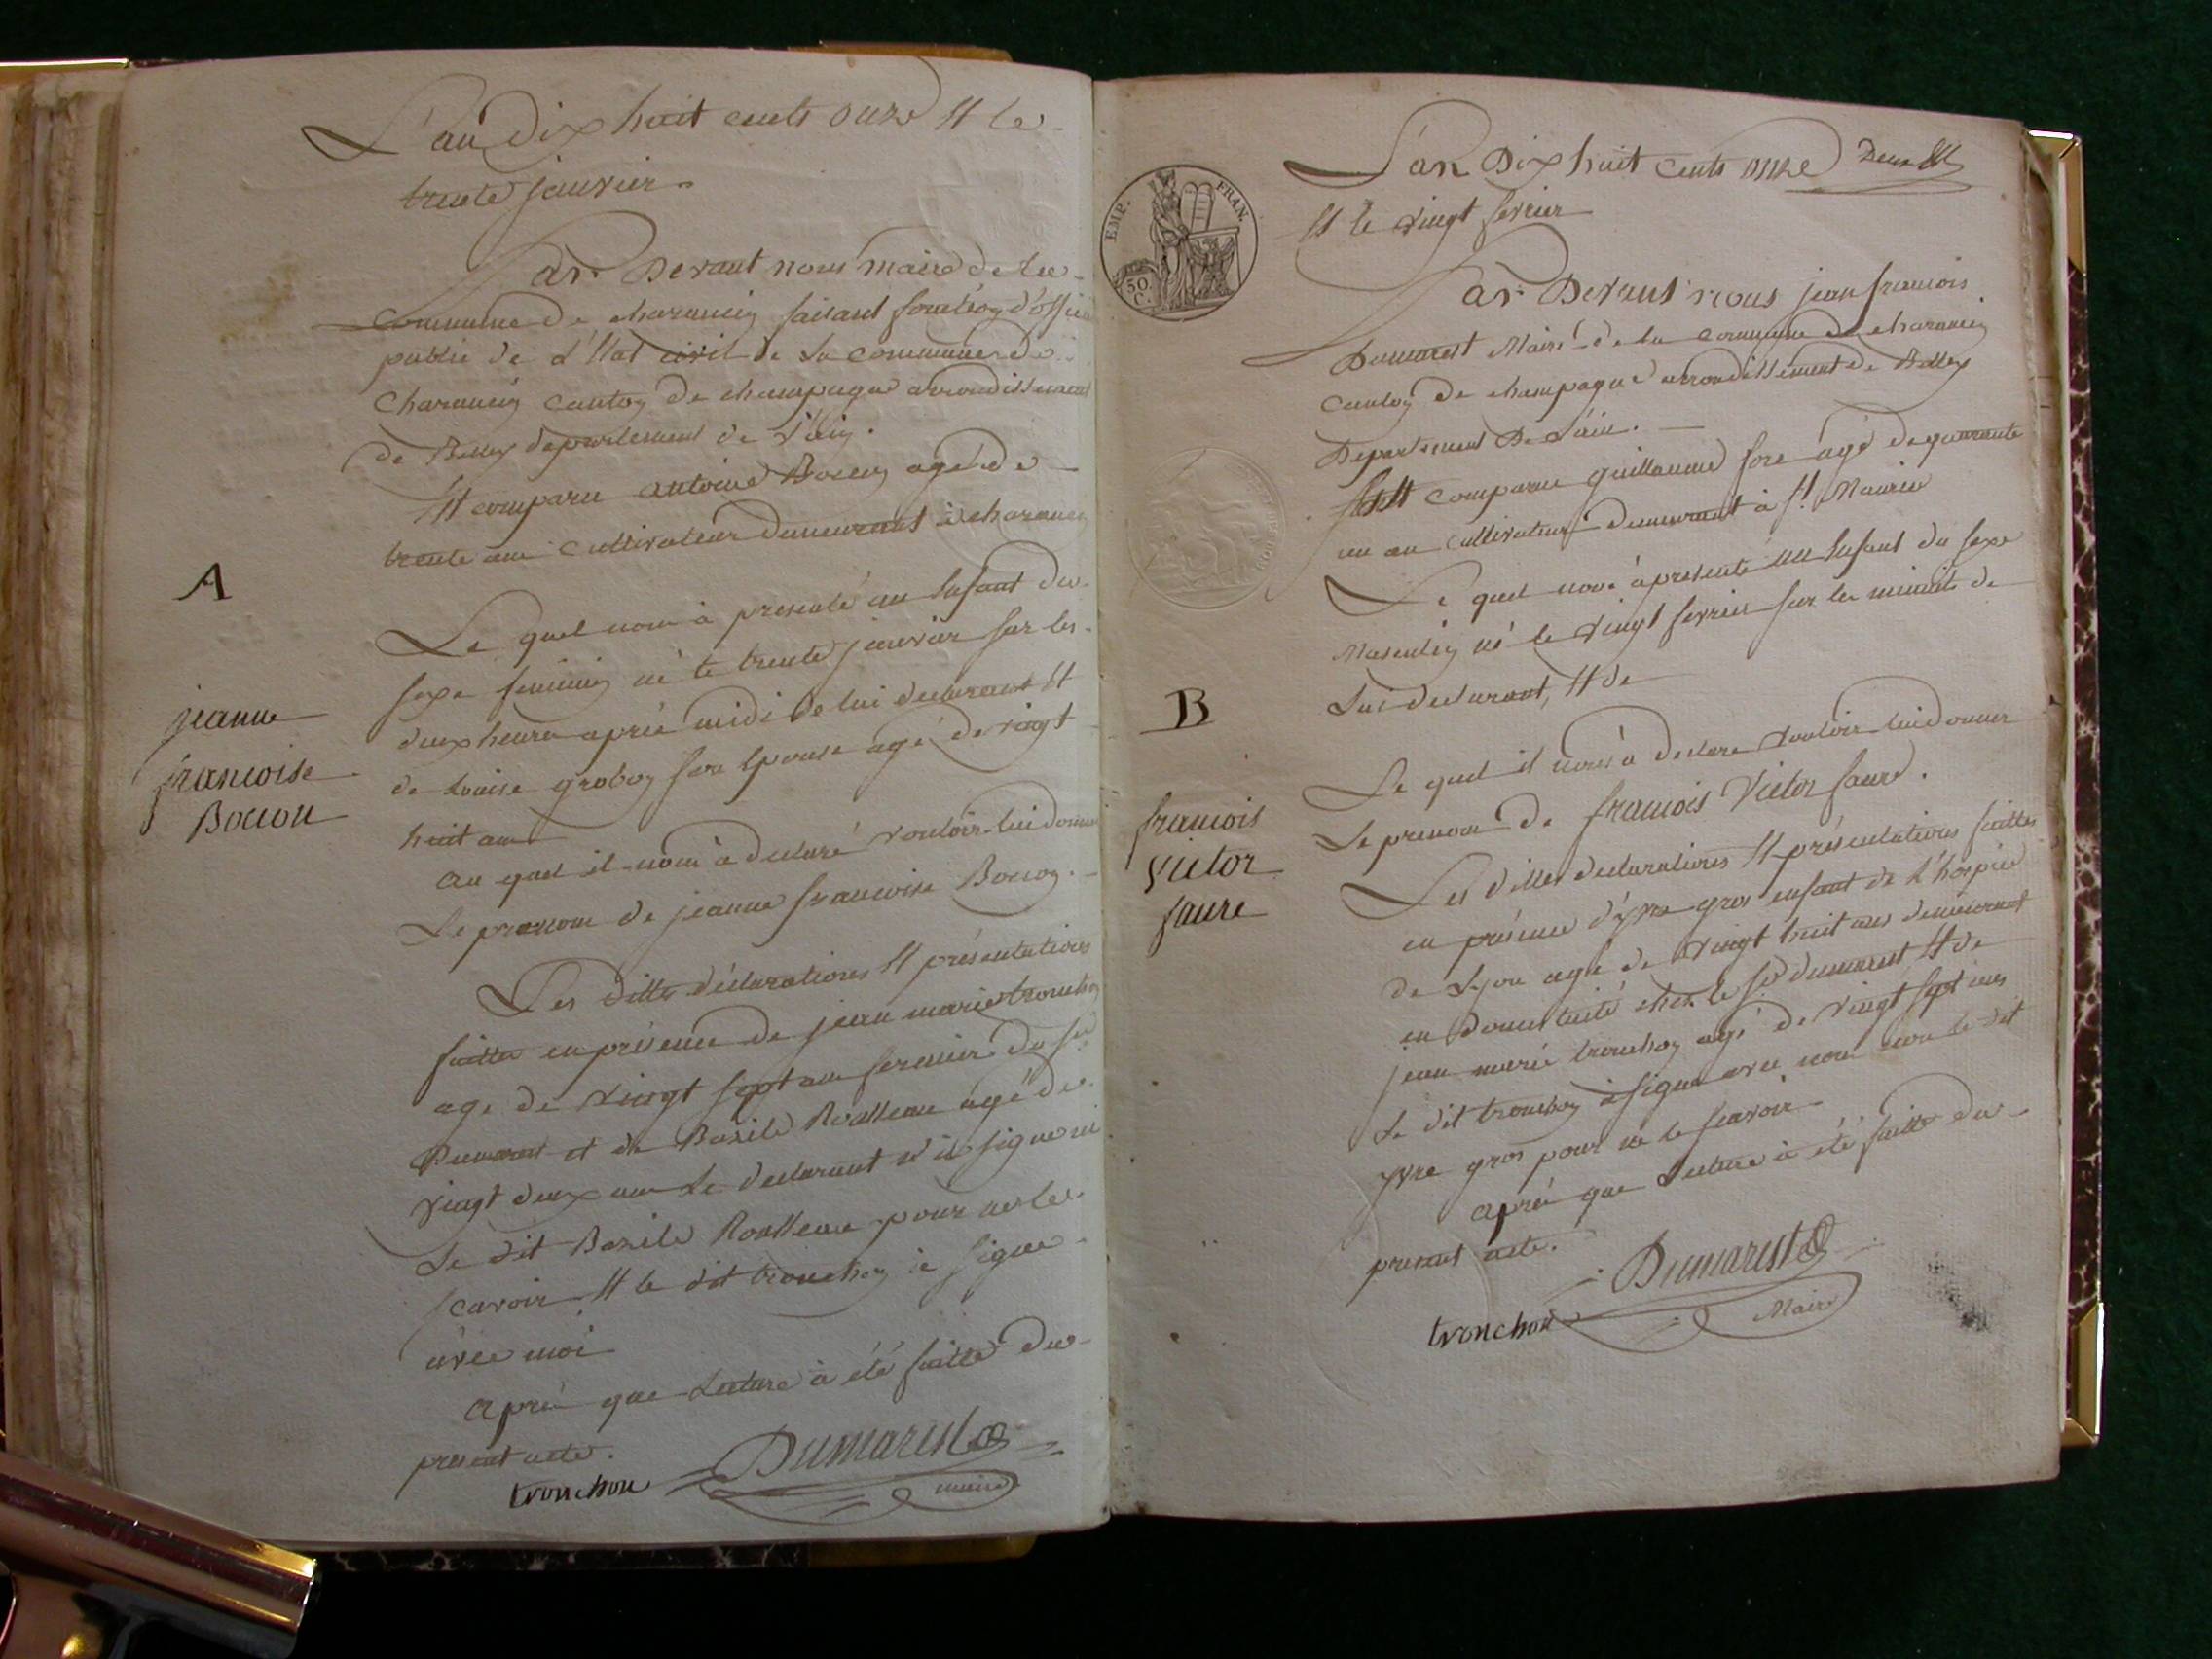 L'an dix huit cents onze et le
trente janvier.
Par Devant nous maire de la
Commune de charancin faisant fonction d'officier
public de l'Etat civil de la commune de
Charancin canton de champagne arrondissement
de Belley departement de l'ain.
Est comparu antoine Bocion agé de
trente ans cultivateur demeurant à charancin
A
Le quel nous à presenté un Enfant du
sexe feminin né le trente janvier sur les
deux heures aprés midi de lui declarant et
de Louise grobon son Epouse agé de vingt
huit ans
jeanne
francoise
Bocion
au quel il nous à declaré vouloir lui donner
Le prenom de jeanne francoise Bocion.
Les dittes déclarations et présentations
faittes en présence de jean marie tronchon
age de vingt sept ans fermier du sr
Dumarest et de Bazile Rousseau agé de
vingt deux ans Le declarant n'a signe ni
Le dit Bazile Rousseau pour ne le
scavoir et le dit tronchon à signe
avec moi
aprés que Lecture à été faitte du
present acte.
tronchon Dumarest
maire
L'an Dix huit cents onze Deux
et le vingt fevrier
EMP. FRAN.
50.
C.
Par Devant nous jean francois
Dumarest Maire de la Commune de charancin
canton de champagne arrondissement de Belley
Departement De L'ain.
Est comparu guillaume fore agé de quarante
un an cultivateur demeurant à St. Maurice
Le quel nous à presenté un Enfant du sexe
Masculin né le vingt fevrier sur les minuits de
Lui declarant, et de
B
francois
victor
faure
Le quel il nous à declare vouloir lui donner
Le prenom de francois Victor faure.
Les dittes declarations et présentations faittes
en présence d'yvre gros enfant de L'hospice
de Lyon agé de vingt huit ans demeurant
en domesticité chez le sr dumarest et de
jean marie tronchon agé de vingt sept ans
Le dit tronchon à signe avec nous non le dit
yvre gros pour ne le scavoir
aprés que Lecture à été faitte du
present acte.
Dumarest
tronchon Maire